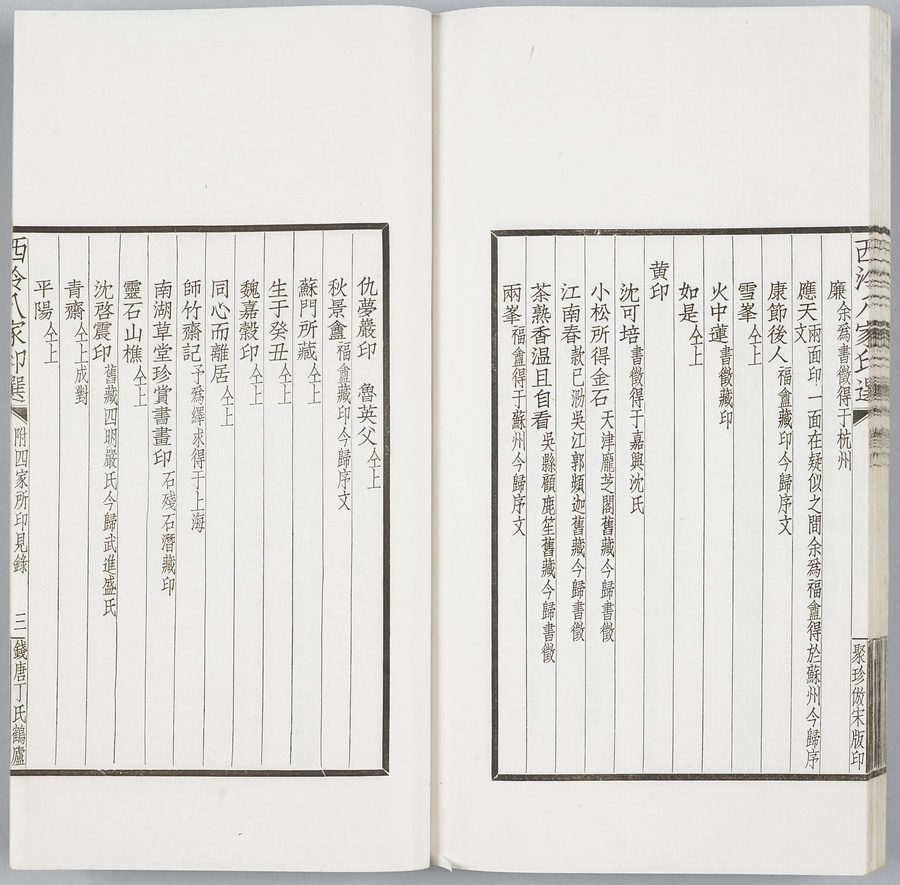 西泠八家印選
聚珍倣宋版印
廉 余爲書徵得于杭州
應天文 兩面印一面在疑似之間余爲福盦得於蘇州今歸序
康節後人 福盦藏印今歸序文
雪峯 仝上
火中蓮 書徵藏印
如是 仝上
黄印
沈可培 書徵得于嘉興沈氏
小松所得金石 天津龐芝閣舊藏今歸書徵
江南春 欵已泐吳江郭頻迦舊藏今歸書徵
茶熟香温且自看 吳縣顧鹿笙舊藏今歸書徵
兩峯 福盦得于蘇州今歸序文
仇夢巖印 魯英父 仝上
秋景盦 福盦藏印今歸序文
蘇門所藏 仝上
生于癸丑 仝上
魏嘉穀印 仝上
同心而離居 仝上
師竹齋記 予爲繹求得于上海
南湖草堂珍賞書畫印 石殘石潛藏印
靈石山樵 仝上
沈啓震印 舊藏四明嚴氏今歸武進盛氏
青齋 仝上成對
平陽 仝上
西泠八家印選 附四家所印見錄 三 錢唐丁氏鶴廬